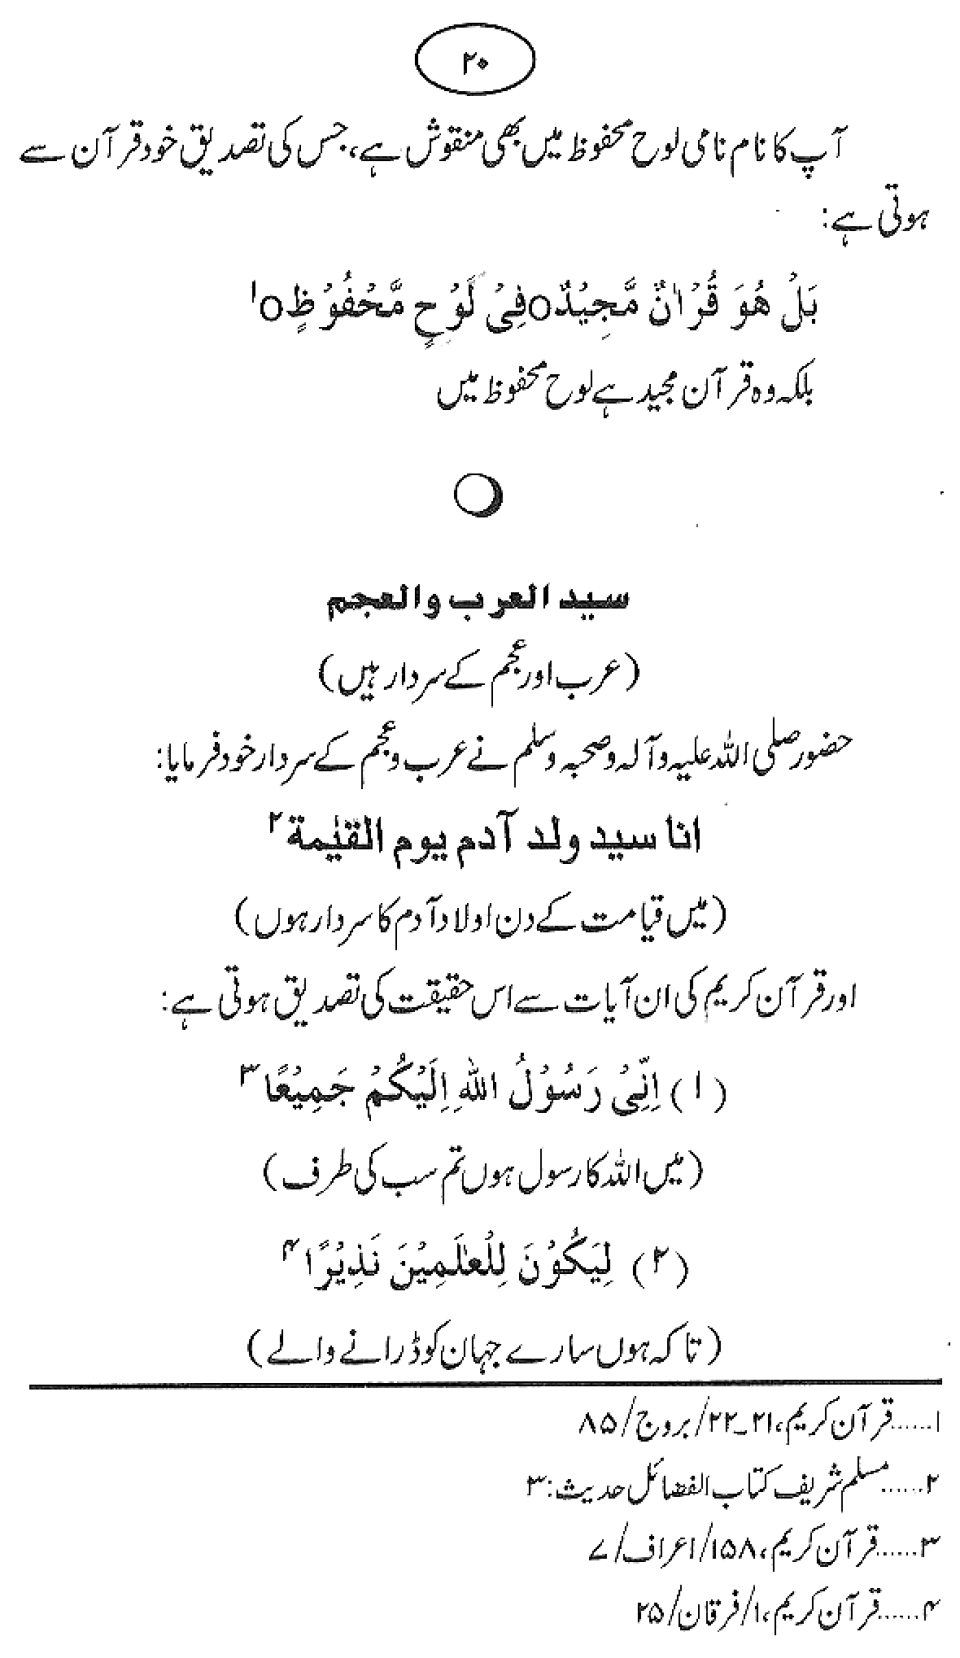 ۲۰
آپ کا نام نامی لوح محفوظ میں بھی منقوش ہے، جس کی تصدیق خود قرآن سے
ہوتی ہے:
بَلْ هُوَ قُرْاٰنٌ مَّجِيْدٌ○فِىْ لَوْحٍ مَّحْفُوْظٍ○۱
بلکہ وہ قرآن مجید ہے لوح محفوظ میں
سید العرب والعجم
(عرب اور عجم کے سردار ہیں)
حضور صلی اللہ علیہ وآلہ وصحبہ وسلم نے عرب وعجم کے سردار خود فرمایا:
انا سيد ولد آدم يوم القيٰمة۲
(میں قیامت کے دن اولاد آدم کا سردار ہوں)
اور قرآن کریم کی ان آیات سے اس حقیقت کی تصدیق ہوتی ہے:
(۱) اِنِّىْ رَسُوْلُ اللّٰهِ اِلَيْكُمْ جَمِيْعًا۳
(میں اللہ کا رسول ہوں تم سب کی طرف)
(۲) لِيَكُوْنَ لِلْعٰلَمِيْنَ نَذِيْرًا۴
(تاکہ ہوں سارے جہان کو ڈرانے والے)
۱......قرآن کریم، ۲۱۔۲۲/بروج/۸۵
۲......مسلم شریف کتاب الفضائل حدیث:۳
۳......قرآن کریم، ۱۵۸/اعراف/۷
۴......قرآن کریم، ۱/فرقان/۲۵